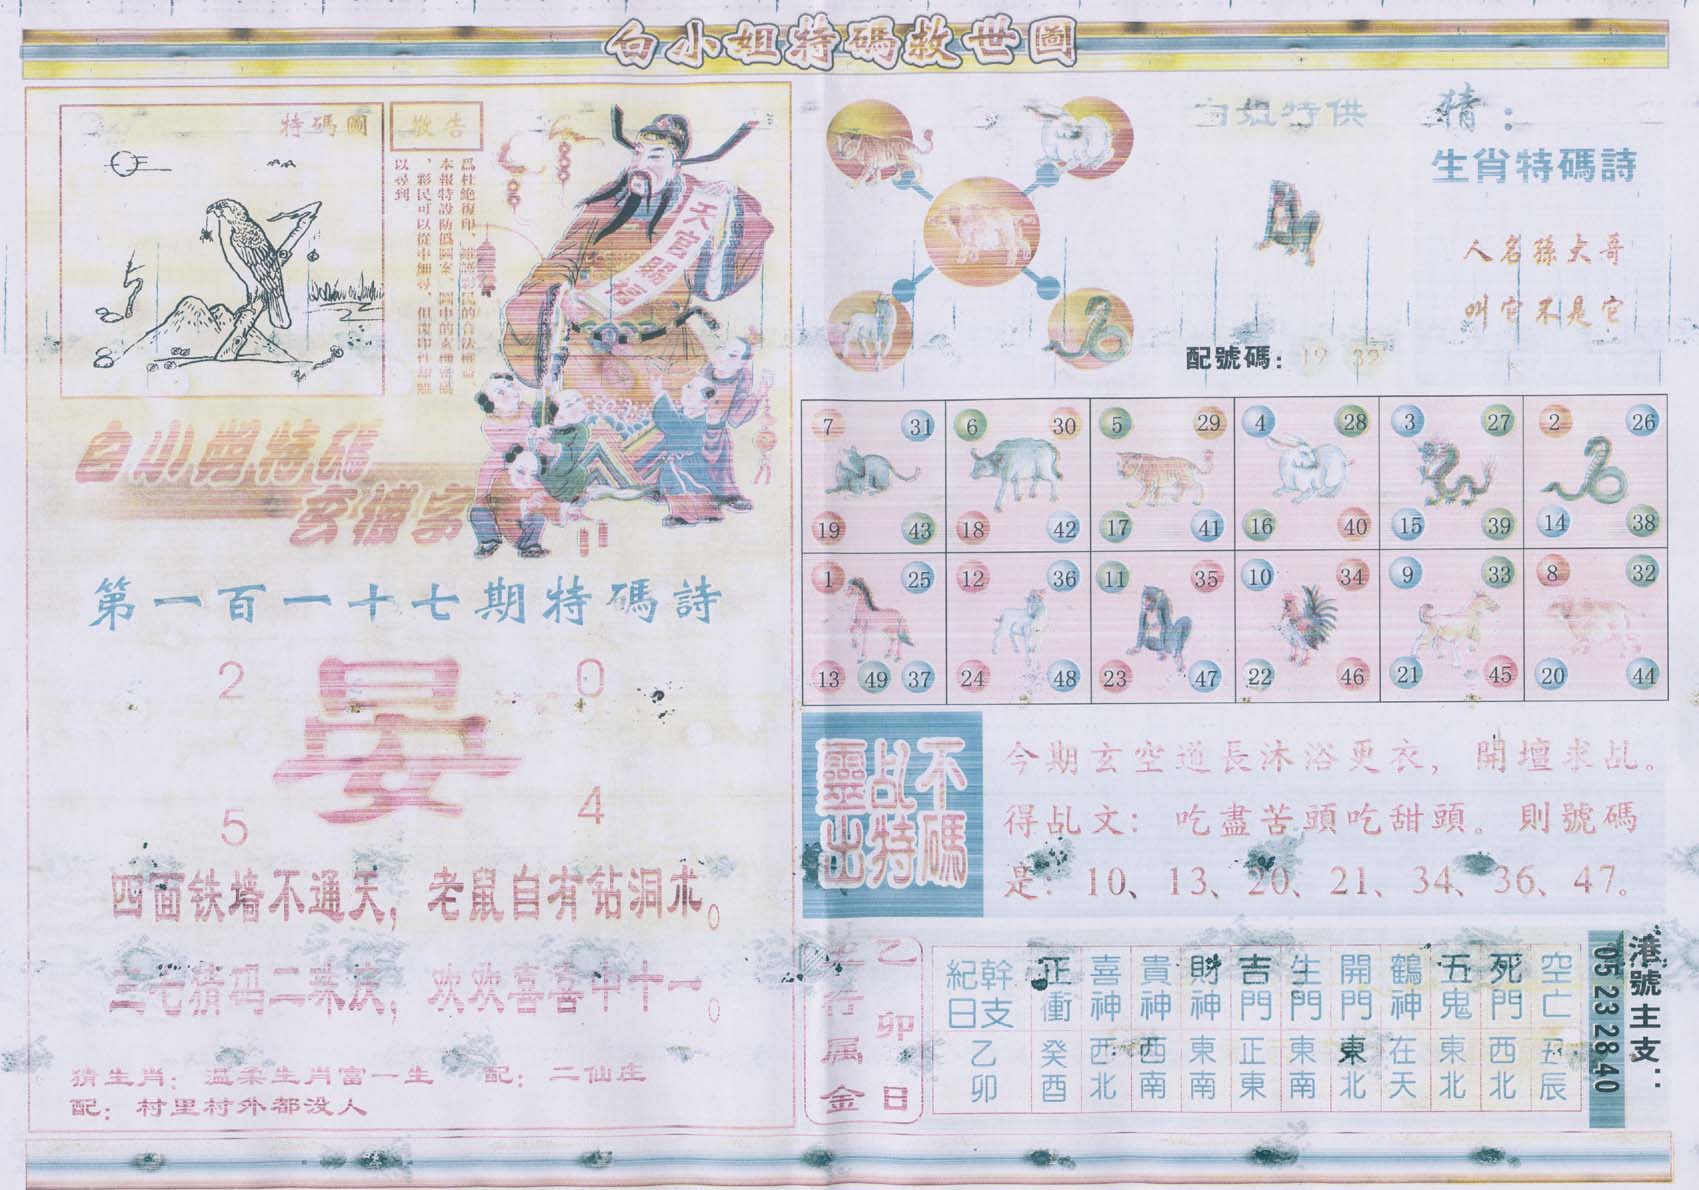 白小姐特碼救世圖
特碼圖
敬告
爲杜絶復印、維護彩民的合法權益、
本報特設防僞圖案、圖中的玄機密碼
、彩民可以從中細尋、但復印件却難
以尋到
天官賜福
白小姐特碼
玄機字
第一百一十七期特碼詩
2 0
晏
5 4
四面铁墙不通天，老鼠自有钻洞术。
三七猜码二来庆，欢欢喜喜中十一。
猜生肖：温柔生肖富一生 配：二仙庄
配：村里村外都没人
白姐特供
猜：
生肖特碼詩
人名孫大哥
叫它不是它
配號碼：19 32
7 31 6 30 5 29 4 28 3 27 2 26
19 43 18 42 17 41 16 40 15 39 14 38
1 25 12 36 11 35 10 34 9 33 8 32
13 49 37 24 48 23 47 22 46 21 45 20 44
靈乩不
出特碼
今期玄空道長沐浴更衣，開壇求乩。
得乩文：吃盡苦頭吃甜頭。則號碼
是：10、13、20、21、34、36、47。
乙卯日
五行属金
紀日幹支 正衝 喜神 貴神 財神 吉門 生門 開門 鶴神 五鬼 死門 空亡
乙卯 癸酉 西北 西南 東南 正東 東南 東北 在天 東北 西北 丑辰
港號主支：
05 23 28 40